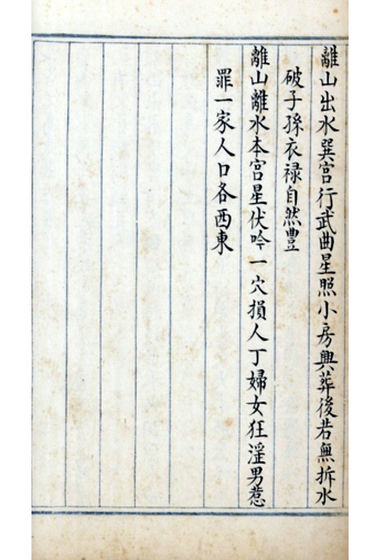 離山出水巽宮行武曲星照小房興葬後若無拆水
破子孫衣禄自然豐
離山離水本宮星伏吟一穴損人丁婦女狂淫男惹
罪一家人口各西東